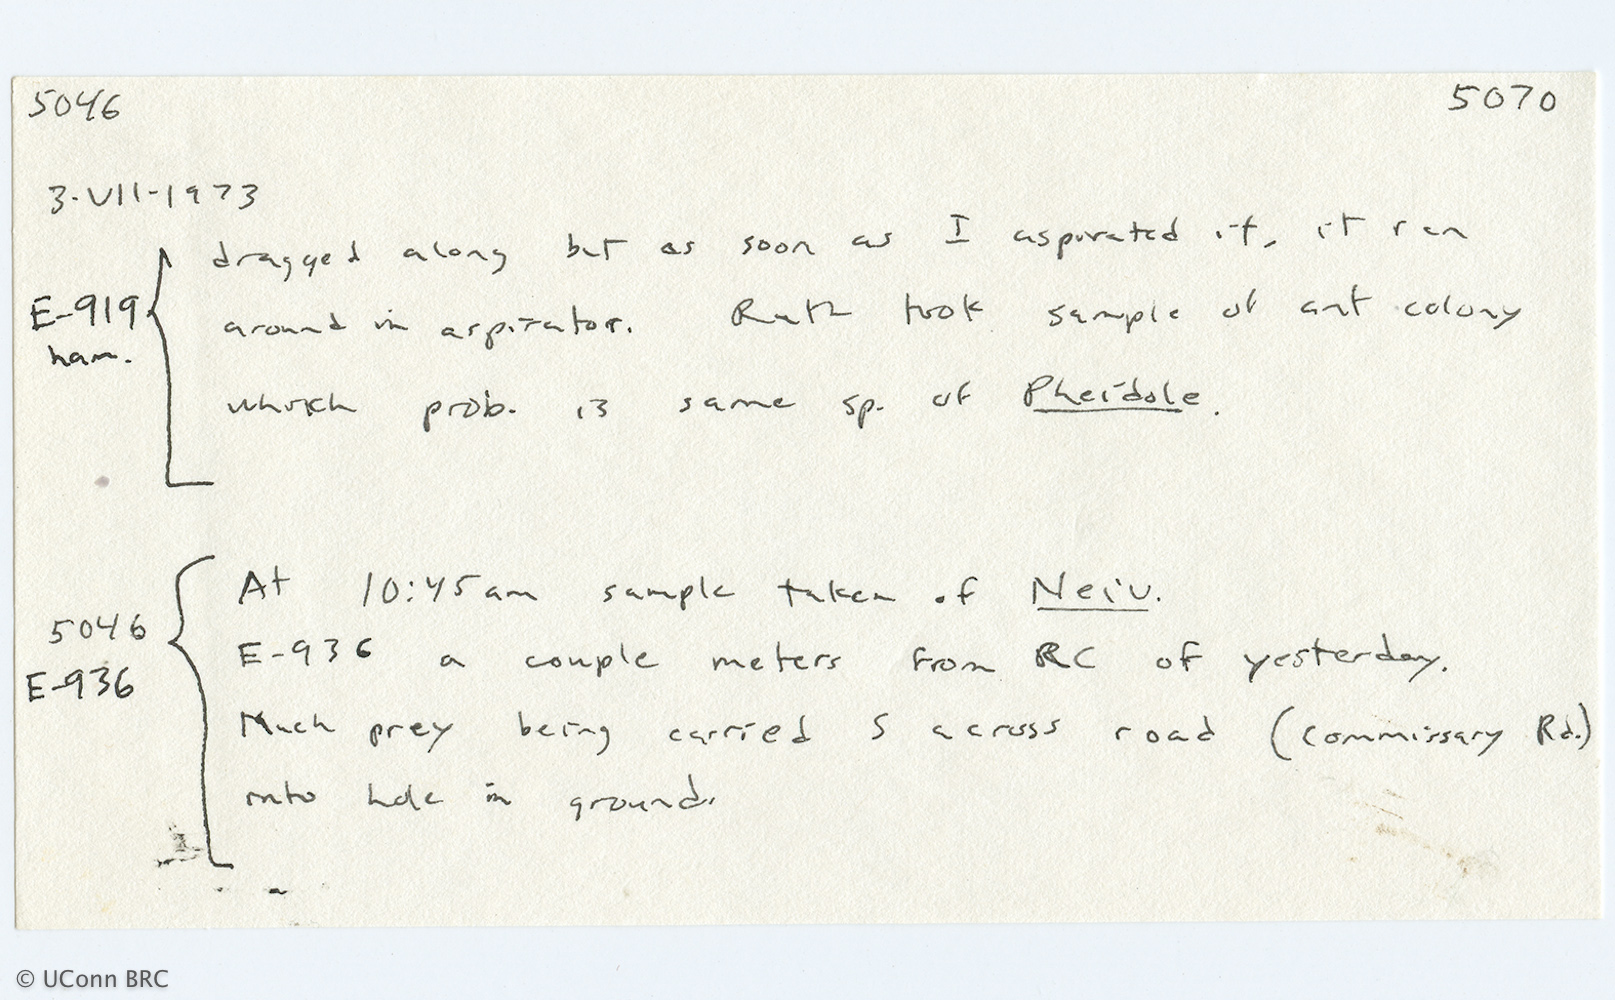 5046 5070
3-VII-1973
dragged along but as soon as I aspirated it, it ran
E-919 around in aspirator. Ruth took sample of ant colony
ham.
which prob. is same sp. of Pheidole.
At 10:45am sample taken of Neiv.
5046
E-936 a couple meters from RC of yesterday.
E-936
Much prey being carried S across road (Commissary Rd.)
into hole in ground.
© UConn BRC